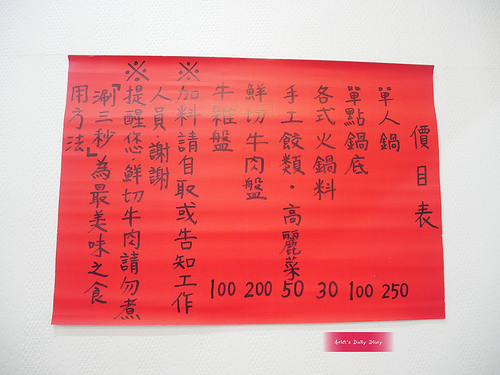 價目表
單人鍋 250
單點鍋底 100
各式火鍋料 30
手工餃類·高麗菜 50
鮮切牛肉盤 200
牛雜盤 100
※加料請自取或告知工作
人員謝謝
※提醒您·鮮切牛肉請勿煮
『涮三秒』為最美味之食
用方法
Ariel's Daily Diary